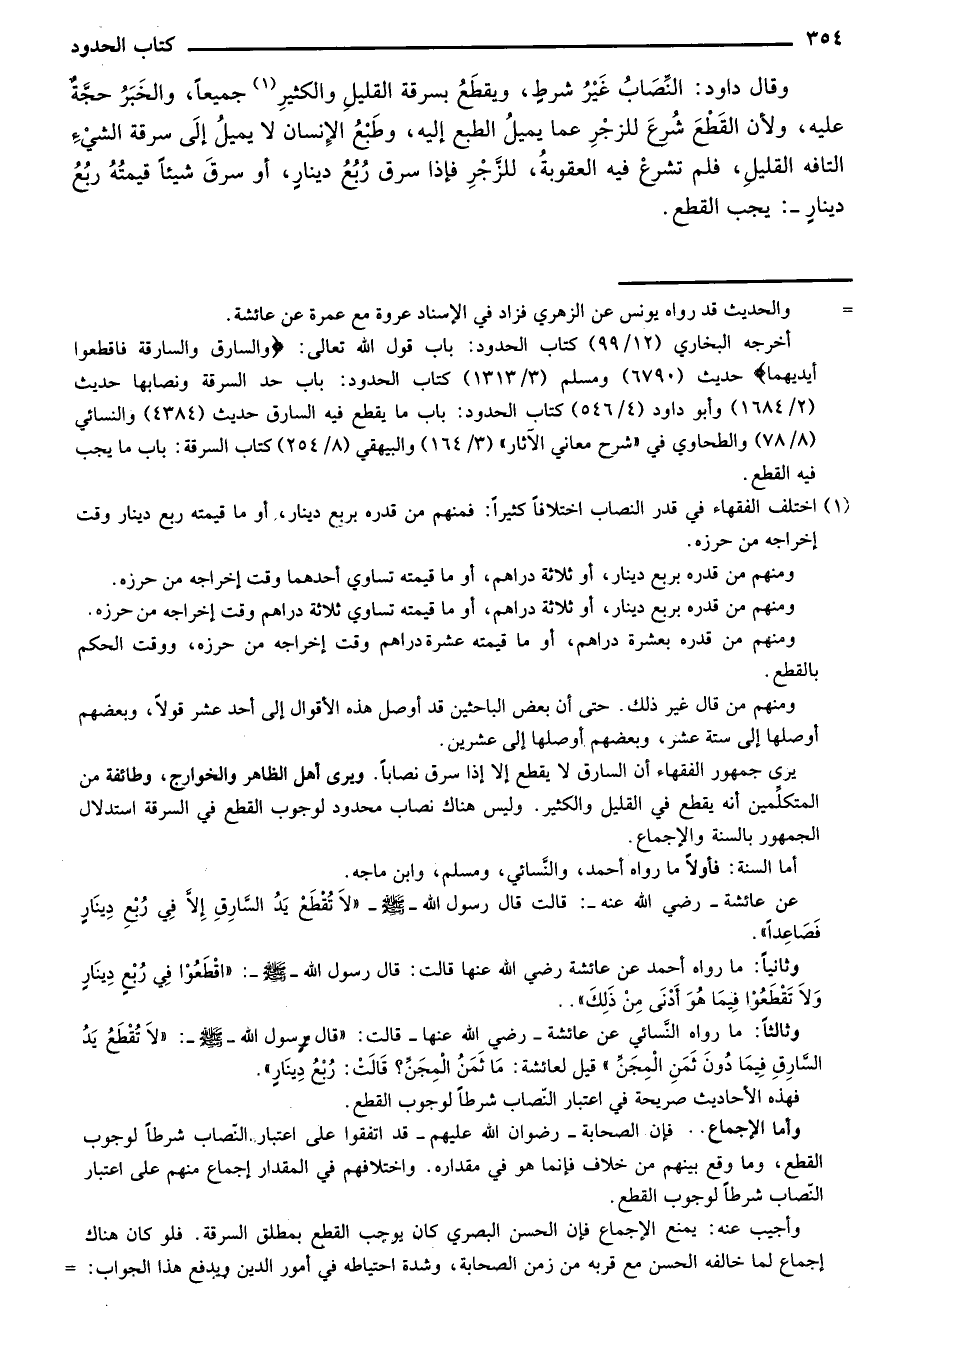 ٣٥٤ كتاب الحدود
وقال داود: النِّصَابُ غَيْرُ شرطٍ، ويقطَعُ بسرقة القليلِ والكثيرِ(١) جميعاً، والخَبَرُ حجَّةٌ
عليه، ولأن القَطْعَ شُرِعَ للزجْرِ عما يميلُ الطبع إليه، وطَبْعُ الإنسان لا يميلُ إلَى سرقة الشيْءِ
التافه القليلِ، فلم تشرعْ فيه العقوبةُ، للزَّجْرِ فإذا سرق رُبُعُ دينارٍ، أو سرقَ شيئاً قيمتُهُ ربعُ
دينارٍ ـ: يجب القطع.
= والحديث قد رواه يونس عن الزهري فزاد في الإسناد عروة مع عمرة عن عائشة.
أخرجه البخاري (٩٩/١٢) كتاب الحدود: باب قول الله تعالى: ﴿والسارق والسارقة فاقطعوا
أيديهما﴾ حديث (٦٧٩٠) ومسلم (١٣١٣/٣) كتاب الحدود: باب حد السرقة ونصابها حديث
(١٦٨٤/٢) وأبو داود (٥٤٦/٤) كتاب الحدود: باب ما يقطع فيه السارق حديث (٤٣٨٤) والنسائي
(٧٨/٨) والطحاوي في «شرح معاني الآثار» (١٦٤/٣) والبيهقي (٢٥٤/٨) كتاب السرقة: باب ما يجب
فيه القطع.
(١) اختلف الفقهاء في قدر النصاب اختلافاً كثيراً: فمنهم من قدره بربع دينار، أو ما قيمته ربع دينار وقت
إخراجه من حرزه.
ومنهم من قدره بربع دينار، أو ثلاثة دراهم، أو ما قيمته تساوي أحدهما وقت إخراجه من حرزه.
ومنهم من قدره بربع دينار، أو ثلاثة دراهم، أو ما قيمته تساوي ثلاثة دراهم وقت إخراجه من حرزه.
ومنهم من قدره بعشرة دراهم، أو ما قيمته عشرة دراهم وقت إخراجه من حرزه، ووقت الحكم
بالقطع.
ومنهم من قال غير ذلك. حتى أن بعض الباحثين قد أوصل هذه الأقوال إلى أحد عشر قولاً، وبعضهم
أوصلها إلى ستة عشر، وبعضهم أوصلها إلى عشرين.
يرى جمهور الفقهاء أن السارق لا يقطع إلا إذا سرق نصاباً. ويرى أهل الظاهر والخوارج، وطائفة من
المتكلِّمين أنه يقطع في القليل والكثير. وليس هناك نصاب محدود لوجوب القطع في السرقة استدلال
الجمهور بالسنة والإجماع.
أما السنة: فأولاً ما رواه أحمد، والنَّسائي، ومسلم، وابن ماجه.
عن عائشة ـ رضي الله عنه ـ: قالت قال رسول الله ـ ﷺ ـ «لاَ تُقْطَعْ يَدُ السَّارِقِ إِلاَّ فِي رُبْعِ دِينَارٍ
فَصَاعِداً».
وثانياً: ما رواه أحمد عن عائشة رضي الله عنها قالت: قال رسول الله ـ ﷺ ـ: «اقْطَعُوْا فِي رُبْعِ دِينَارٍ
وَلاَ تَقْطَعُوْا فِيمَا هُوَ أَدْنَى مِنْ ذَلِكَ»..
وثالثاً: ما رواه النَّسائي عن عائشة ـ رضي الله عنها ـ قالت: «قال رسول الله ـ ﷺ ـ: «لاَ تُقْطَعُ يَدُ
السَّارِقِ فِيمَا دُونَ ثَمَنِ الْمِجَنِّ» قيل لعائشة: مَا ثَمَنُ الْمِجَنِّ؟ قَالَتْ: رُبْعُ دِينَارٍ».
فهذه الأحاديث صريحة في اعتبار النّصاب شرطاً لوجوب القطع.
وأما الإجماع.. فإن الصحابة ـ رضوان الله عليهم ـ قد اتفقوا على اعتبار النّصاب شرطاً لوجوب
القطع، وما وقع بينهم من خلاف فإنما هو في مقداره. واختلافهم في المقدار إجماع منهم على اعتبار
النّصاب شرطاً لوجوب القطع.
وأجيب عنه: يمنع الإجماع فإن الحسن البصري كان يوجب القطع بمطلق السرقة. فلو كان هناك
إجماع لما خالفه الحسن مع قربه من زمن الصحابة، وشدة احتياطه في أمور الدين ويدفع هذا الجواب: =